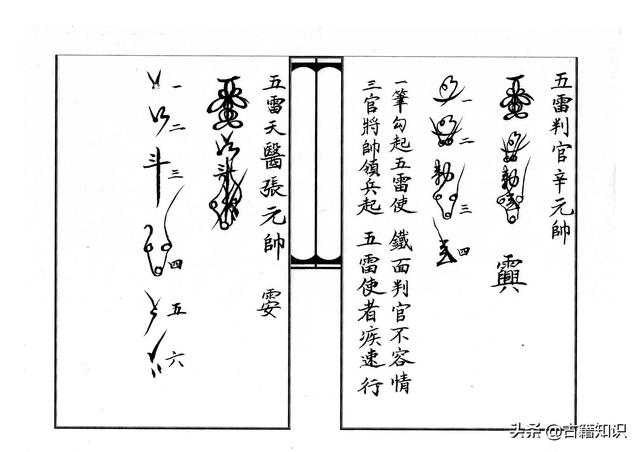 五雷判官辛元帥
勅
一 二 三 四
一筆勾起五雷使 鐵面判官不容情
三官將帥領兵起 五雷使者疾速行
五雷天醫張元帥
斗
一 二 三 四 五 六
头条 @古籍知识